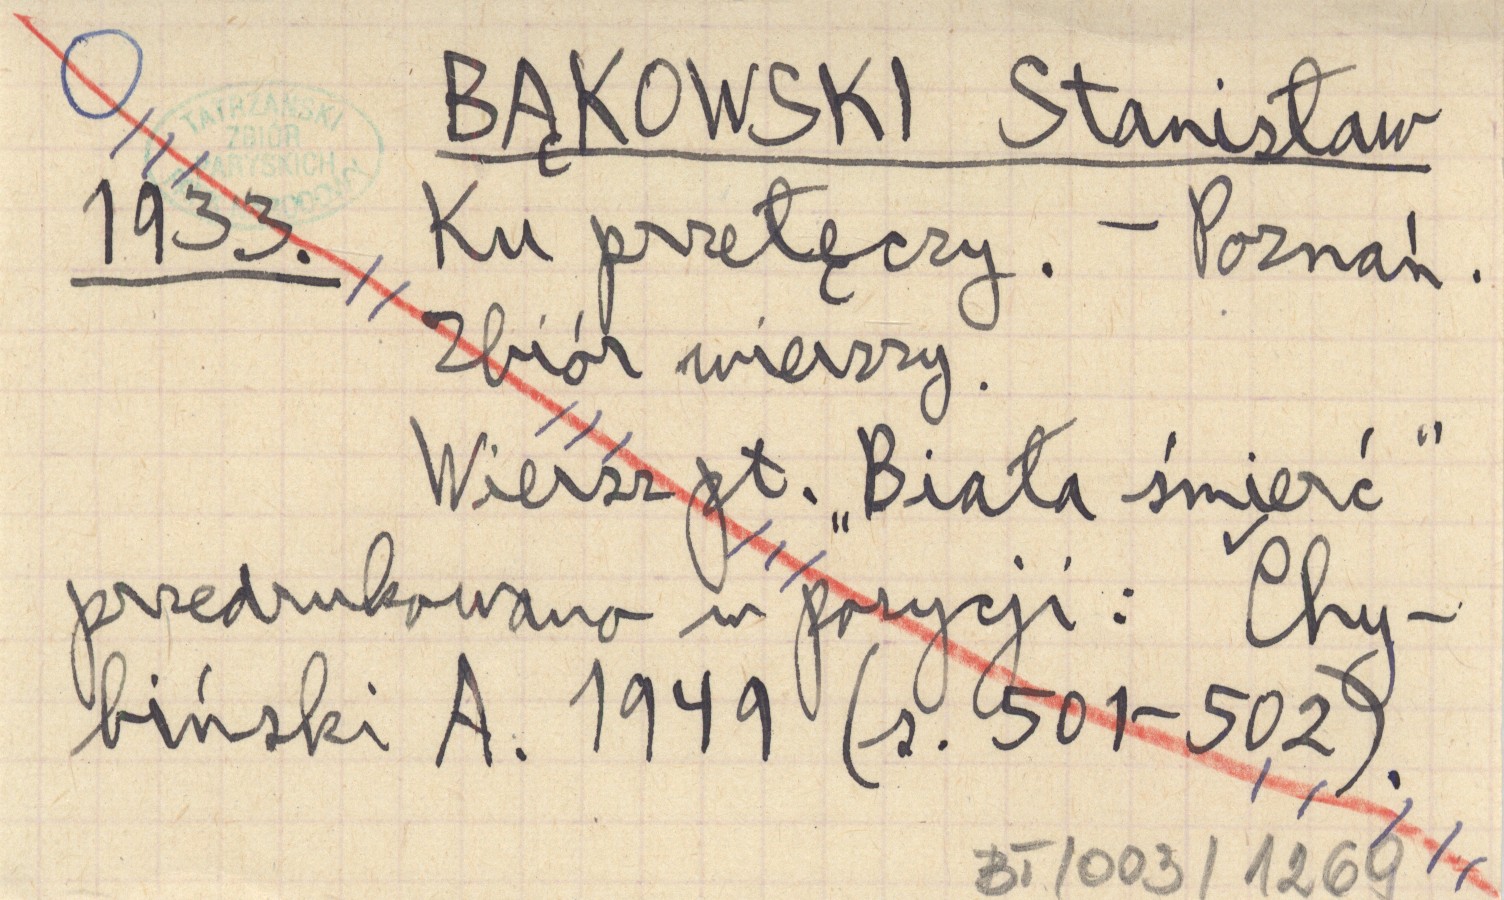 BĄKOWSKI Stanisław
TATRZAŃSKI
ZBIÓR
PARYSKICH
1933. Ku przełęczy. – Poznań.
Zbiór wierszy.
Wiersz pt. „Biała śmierć"
przedrukowano w pozycji: Chy-
biński A. 1949 (s. 501–502).
BT/003/1269